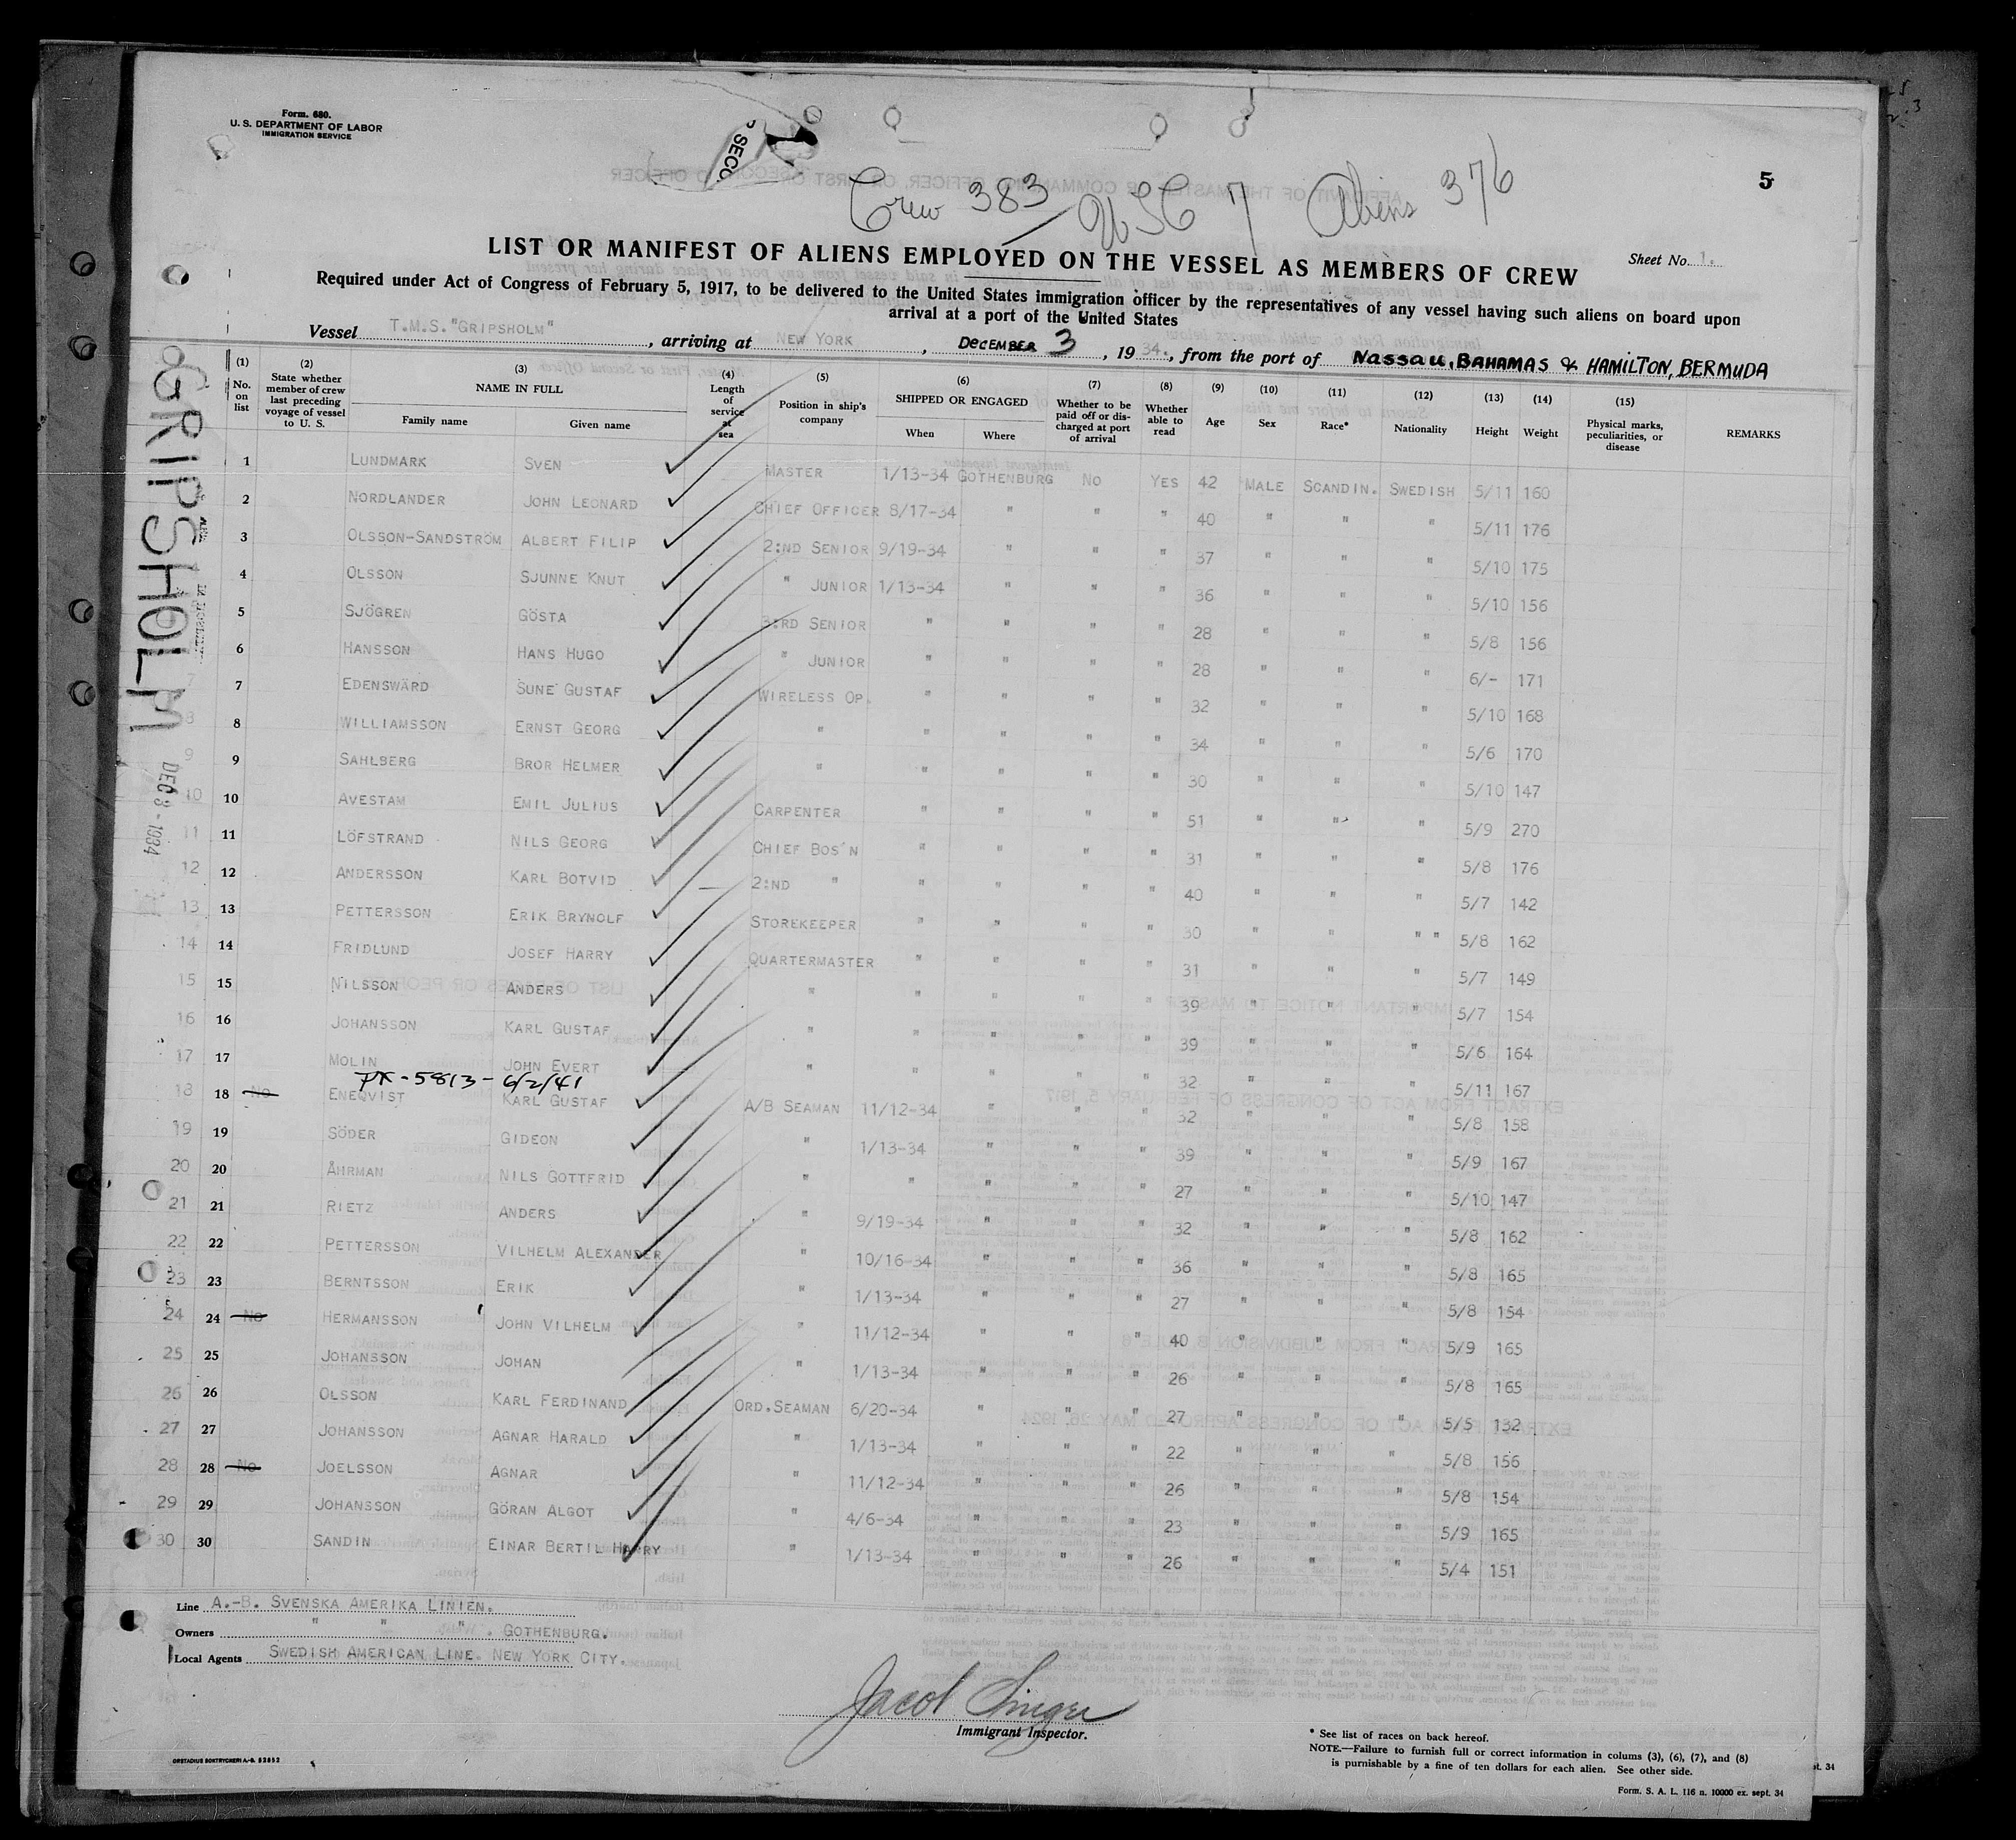 Form. 680.
U. S. DEPARTMENT OF LABOR
IMMIGRATION SERVICE
SECO
5
Crew 383 / USC 7 Aliens 376
LIST OR MANIFEST OF ALIENS EMPLOYED ON THE VESSEL AS MEMBERS OF CREW
Sheet No. 1.
Required under Act of Congress of February 5, 1917, to be delivered to the United States immigration officer by the representatives of any vessel having such aliens on board upon
arrival at a port of the United States
Vessel T.M.S. "GRIPSHOLM", arriving at NEW YORK, DECEMBER 3, 1934., from the port of Nassau, BAHAMAS & HAMILTON, BERMUDA
GRIPSHOLM
DEC 3 - 1934
(1) (2) (3) (4) (5) (6) (7) (8) (9) (10) (11) (12) (13) (14) (15)
No. on list | State whether member of crew last preceding voyage of vessel to U. S. | NAME IN FULL Family name Given name | Length of service at sea | Position in ship's company | SHIPPED OR ENGAGED When Where | Whether to be paid off or discharged at port of arrival | Whether able to read | Age | Sex | Race* | Nationality | Height | Weight | Physical marks, peculiarities, or disease | REMARKS
1 LUNDMARK SVEN MASTER 1/13-34 GOTHENBURG NO YES 42 MALE SCANDIN. SWEDISH 5/11 160
2 NORDLANDER JOHN LEONARD CHIEF OFFICER 8/17-34 " " " 40 " " " 5/11 176
3 OLSSON-SANDSTRÖM ALBERT FILIP 2:ND SENIOR 9/19-34 " " " 37 " " " 5/10 175
4 OLSSON SJUNNE KNUT " JUNIOR 1/13-34 " " " 36 " " " 5/10 156
5 SJÖGREN GÖSTA 3:RD SENIOR " " " " 28 " " " 5/8 156
6 HANSSON HANS HUGO " JUNIOR " " " " 28 " " " 6/- 171
7 EDENSWÄRD SUNE GUSTAF WIRELESS OP. " " " " 32 " " " 5/10 168
8 WILLIAMSSON ERNST GEORG " " " " " 34 " " " 5/6 170
9 SAHLBERG BROR HELMER " " " " " 30 " " " 5/10 147
10 10 AVESTAM EMIL JULIUS CARPENTER " " " " 51 " " " 5/9 270
11 11 LÖFSTRAND NILS GEORG CHIEF BOS'N " " " " 31 " " " 5/8 176
12 12 ANDERSSON KARL BOTVID 2:ND " " " " " 40 " " " 5/7 142
13 13 PETTERSSON ERIK BRYNOLF STOREKEEPER " " " " 30 " " " " 5/8 162
14 14 FRIDLUND JOSEF HARRY QUARTERMASTER " " " " 31 " " " 5/7 149
15 15 NILSSON ANDERS " " " " " 39 " " " 5/7 154
16 16 JOHANSSON KARL GUSTAF " " " " " 39 " " " 5/6 164
17 17 MOLIN JOHN EVERT " " " " " 32 " " " 5/11 167
- 5813 - 6/2/41
18 18 No ENEQVIST KARL GUSTAF A/B SEAMAN 11/12-34 " " " 32 " " " 5/8 158
19 19 SÖDER GIDEON " 1/13-34 " " " 39 " " " 5/9 167
20 20 ÅHRMAN NILS GOTTFRID " " " " " 27 " " " 5/10 147
21 21 RIETZ ANDERS " 9/19-34 " " " 32 " " " 5/8 162
22 22 PETTERSSON VILHELM ALEXANDER " 10/16-34 " " " 36 " " " 5/8 165
23 23 BERNTSSON ERIK " 1/13-34 " " " 27 " " " 5/8 154
24 24 No HERMANSSON JOHN VILHELM " 11/12-34 " " " 40 " " " 5/9 165
25 25 JOHANSSON JOHAN " 1/13-34 " " " 26 " " " 5/8 165
26 26 OLSSON KARL FERDINAND ORD.SEAMAN 6/20-34 " " " 27 " " " 5/5 132
27 27 JOHANSSON AGNAR HARALD " 1/13-34 " " " 22 " " " 5/8 156
28 28 No JOELSSON AGNAR " 11/12-34 " " " 26 " " " 5/8 154
29 29 JOHANSSON GÖRAN ALGOT " 4/6-34 " " " 23 " " " 5/9 165
30 30 SANDIN EINAR BERTIL HARRY " 1/13-34 " " " 26 " " " 5/4 151
Line A.-B. SVENSKA AMERIKA LINIEN.
Owners " " " . GOTHENBURG.
Local Agents SWEDISH AMERICAN LINE. NEW YORK CITY.
Jacob Singer
Immigrant Inspector.
* See list of races on back hereof.
NOTE.—Failure to furnish full or correct information in colums (3), (6), (7), and (8)
is punishable by a fine of ten dollars for each alien. See other side.
ORSTADIUS BOKTRYCKERI A.-B. 52852
Form. S. A. L. 116 n. 10000 ex. sept. 34
t. 34